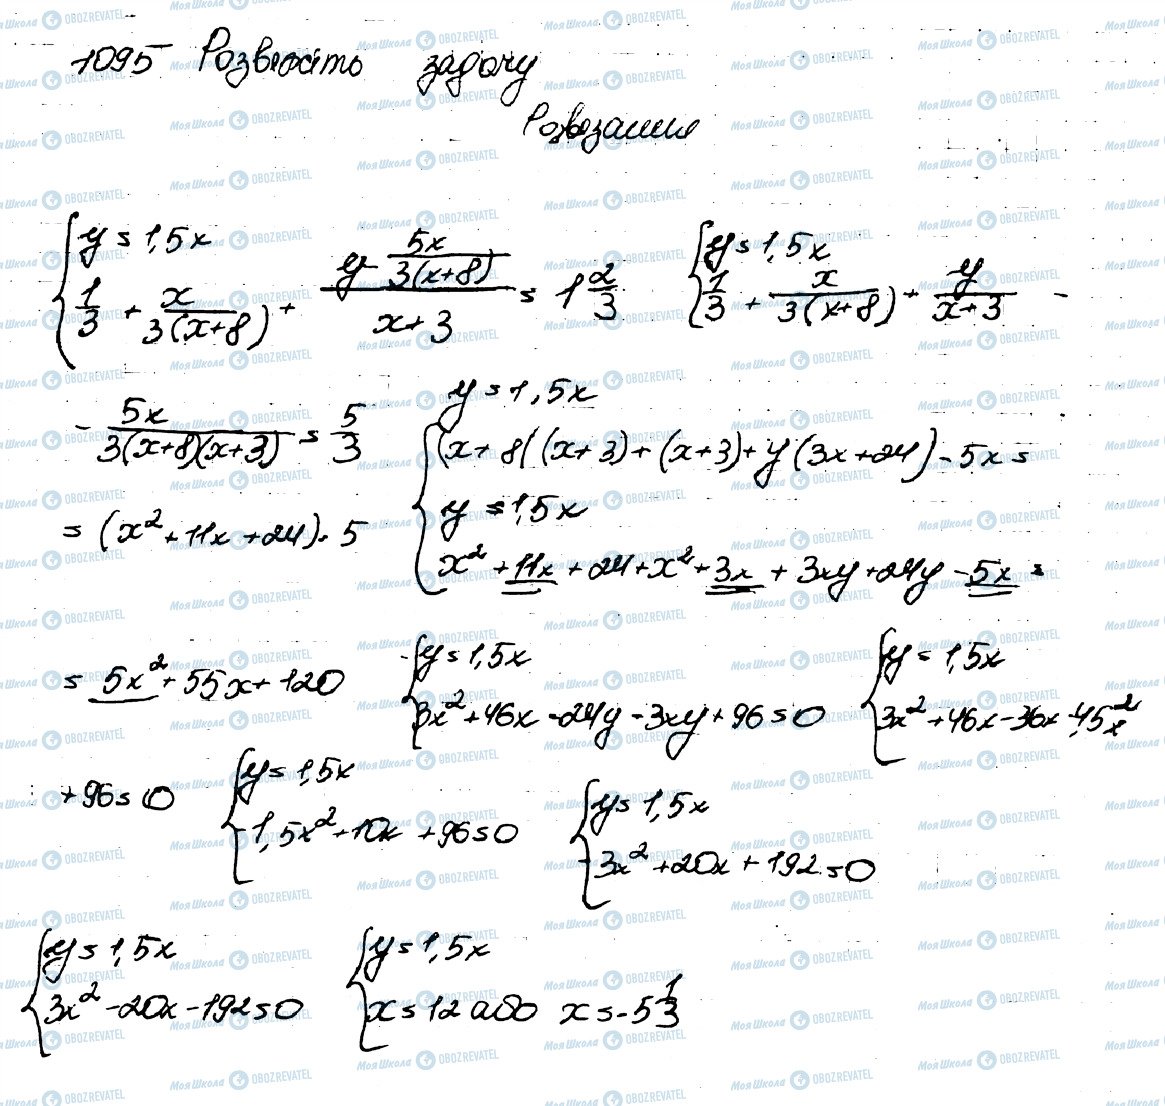 1095 Розв'яжіть задачу
Розвязання
{ y = 1,5x ; 1/3 + x/(3(x+8)) + (y - 5x/(3(x+8)))/(x+3) = 1 2/3 { y = 1,5x ; 1/3 + x/(3(x+8)) + y/(x+3) -
- 5x/(3(x+8)(x+3)) = 5/3 { y = 1,5x ; (x+8)(x+3)+(x+3)+y(3x+24)-5x =
= (x²+11x+24)·5 { y = 1,5x ; x²+11x+24+x²+3x+3xy+24y-5x =
= 5x²+55x+120 { y = 1,5x ; 3x²+46x-24y-3xy+96=0 { y = 1,5x ; 3x²+46x-36x-4,5x²
+96=0 { y = 1,5x ; -1,5x²+10x+96=0 { y = 1,5x ; -3x²+20x+192=0
{ y = 1,5x ; 3x²-20x-192=0 { y = 1,5x ; x=12 або x=-5 1/3
Моя Школа OBOZREVATEL